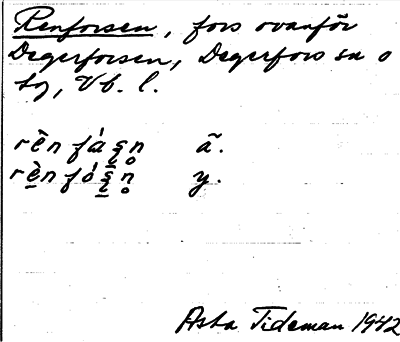 Renforsen, fors ovanför
Degerforsen, Degerfors sn o
tg, Vb. l.
ã.
y.
Asta Tideman 1942